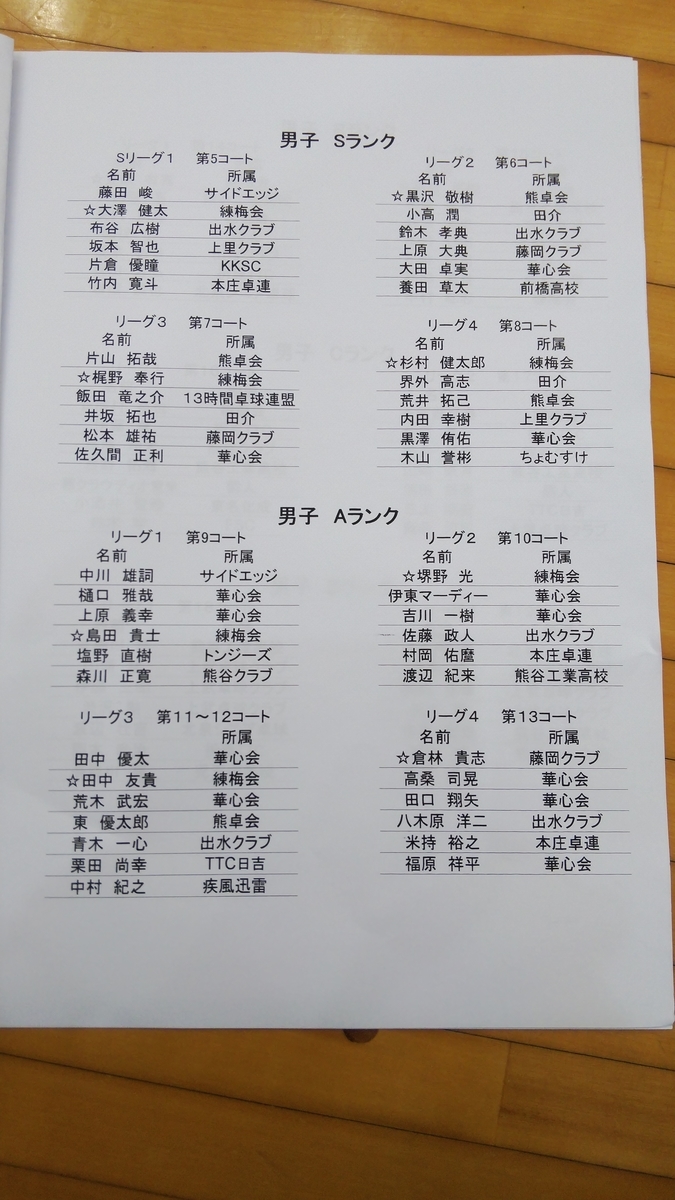 男子 Sランク
Sリーグ1 第5コート
名前 所属
藤田 峻 サイドエッジ
☆大澤 健太 練梅会
布谷 広樹 出水クラブ
坂本 智也 上里クラブ
片倉 優瞳 KKSC
竹内 寛斗 本庄卓連
リーグ2 第6コート
名前 所属
☆黒沢 敬樹 熊卓会
小高 潤 田介
鈴木 孝典 出水クラブ
上原 大典 藤岡クラブ
大田 卓実 華心会
養田 草太 前橋高校
リーグ3 第7コート
名前 所属
片山 拓哉 熊卓会
☆梶野 奉行 練梅会
飯田 竜之介 13時間卓球連盟
井坂 拓也 田介
松本 雄祐 藤岡クラブ
佐久間 正利 華心会
リーグ4 第8コート
名前 所属
☆杉村 健太郎 練梅会
界外 高志 田介
荒井 拓己 熊卓会
内田 幸樹 上里クラブ
黒澤 侑佑 華心会
木山 誉彬 ちょむすけ
男子 Aランク
リーグ1 第9コート
名前 所属
中川 雄詞 サイドエッジ
樋口 雅哉 華心会
上原 義幸 華心会
☆島田 貴士 練梅会
塩野 直樹 トンジーズ
森川 正寛 熊谷クラブ
リーグ2 第10コート
名前 所属
☆堺野 光 練梅会
伊東マーディー 華心会
吉川 一樹 華心会
佐藤 政人 出水クラブ
村岡 佑麿 本庄卓連
渡辺 紀来 熊谷工業高校
リーグ3 第11~12コート
所属
田中 優太 華心会
☆田中 友貴 練梅会
荒木 武宏 華心会
東 優太郎 熊卓会
青木 一心 出水クラブ
栗田 尚幸 TTC日吉
中村 紀之 疾風迅雷
リーグ4 第13コート
名前 所属
☆倉林 貴志 藤岡クラブ
高桑 司晃 華心会
田口 翔矢 華心会
八木原 洋二 出水クラブ
米持 裕之 本庄卓連
福原 祥平 華心会